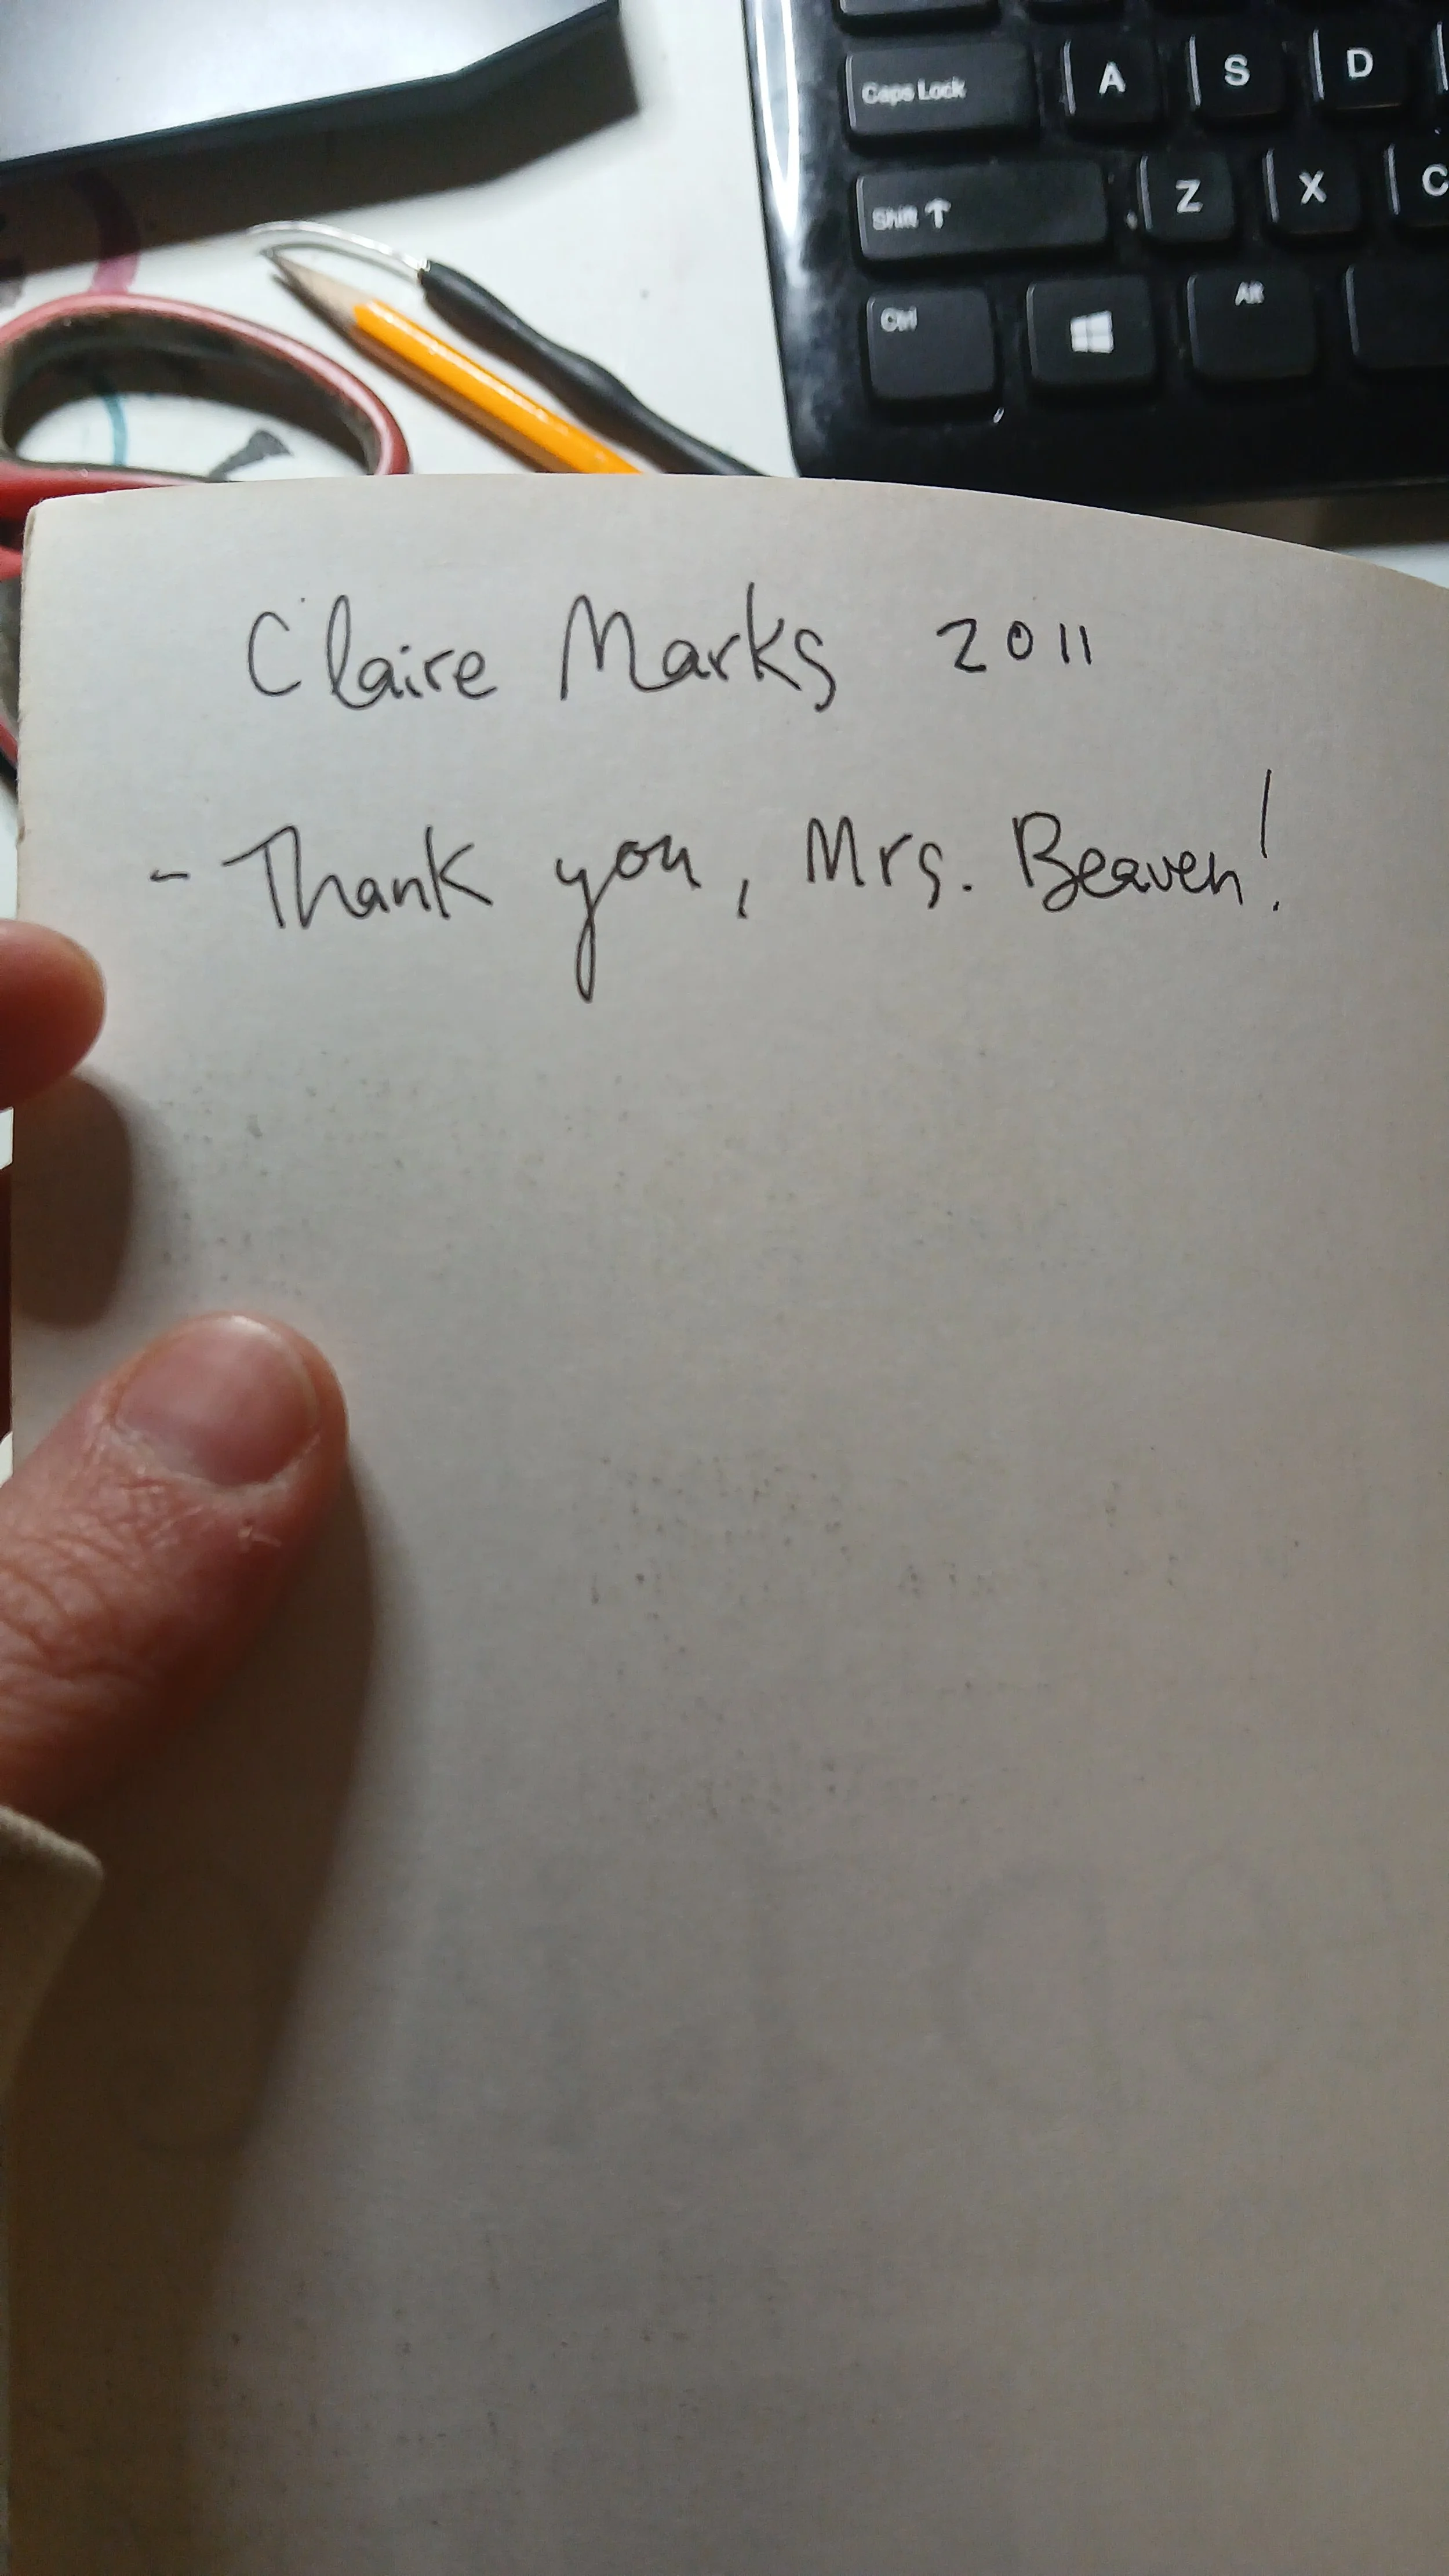 Caps Lock A S D
Shift ↑ Z X C
Ctrl Alt
Claire Marks 2011
- Thank you, Mrs. Beaven!